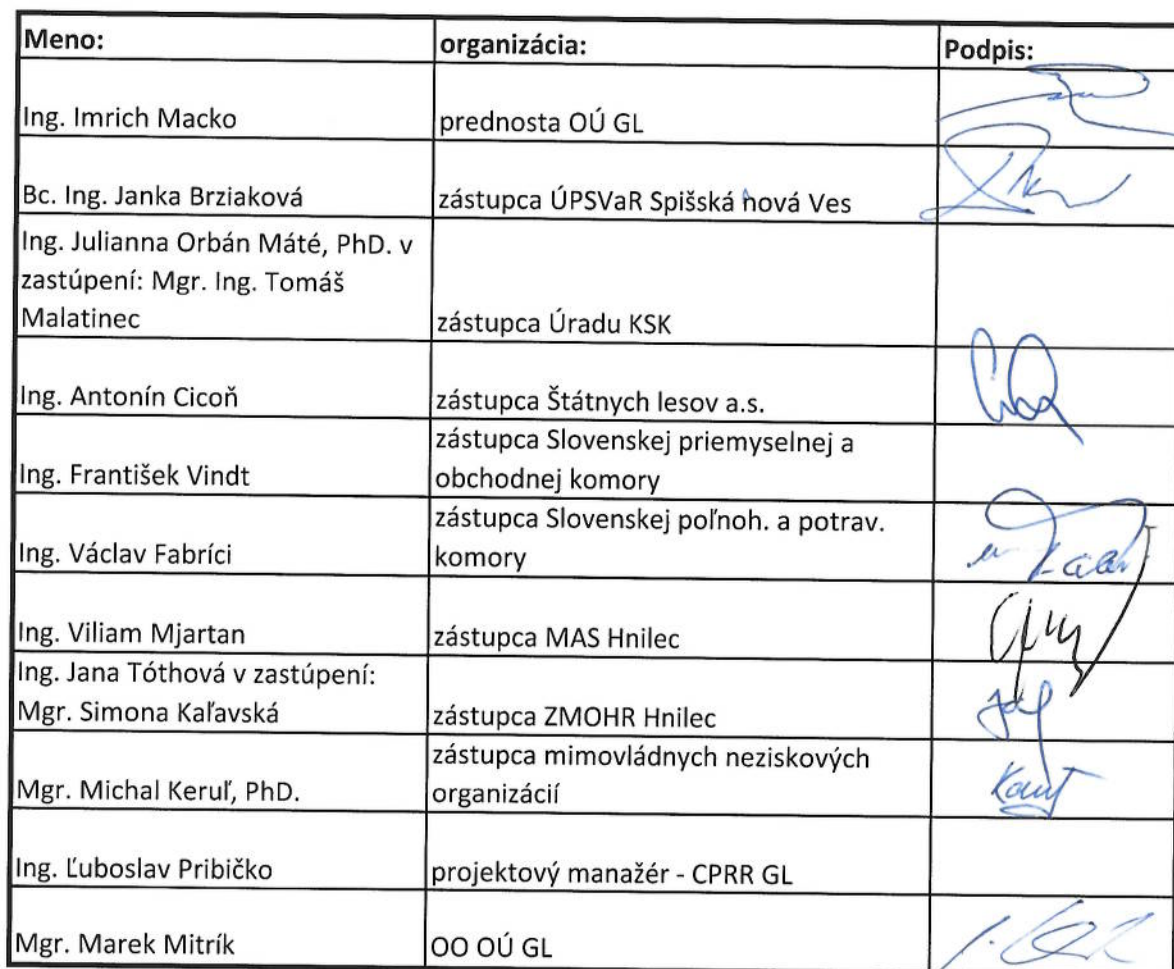 Meno: organizácia: Podpis:
Ing. Imrich Macko prednosta OÚ GL
Bc. Ing. Janka Brziaková zástupca ÚPSVaR Spišská nová Ves
Ing. Julianna Orbán Máté, PhD. v
zastúpení: Mgr. Ing. Tomáš
Malatinec zástupca Úradu KSK
Ing. Antonín Cicoň zástupca Štátnych lesov a.s.
zástupca Slovenskej priemyselnej a
Ing. František Vindt obchodnej komory
zástupca Slovenskej poľnoh. a potrav.
Ing. Václav Fabríci komory
Ing. Viliam Mjartan zástupca MAS Hnilec
Ing. Jana Tóthová v zastúpení:
Mgr. Simona Kaľavská zástupca ZMOHR Hnilec
zástupca mimovládnych neziskových
Mgr. Michal Keruľ, PhD. organizácií
Ing. Ľuboslav Pribičko projektový manažér - CPRR GL
Mgr. Marek Mitrík OO OÚ GL